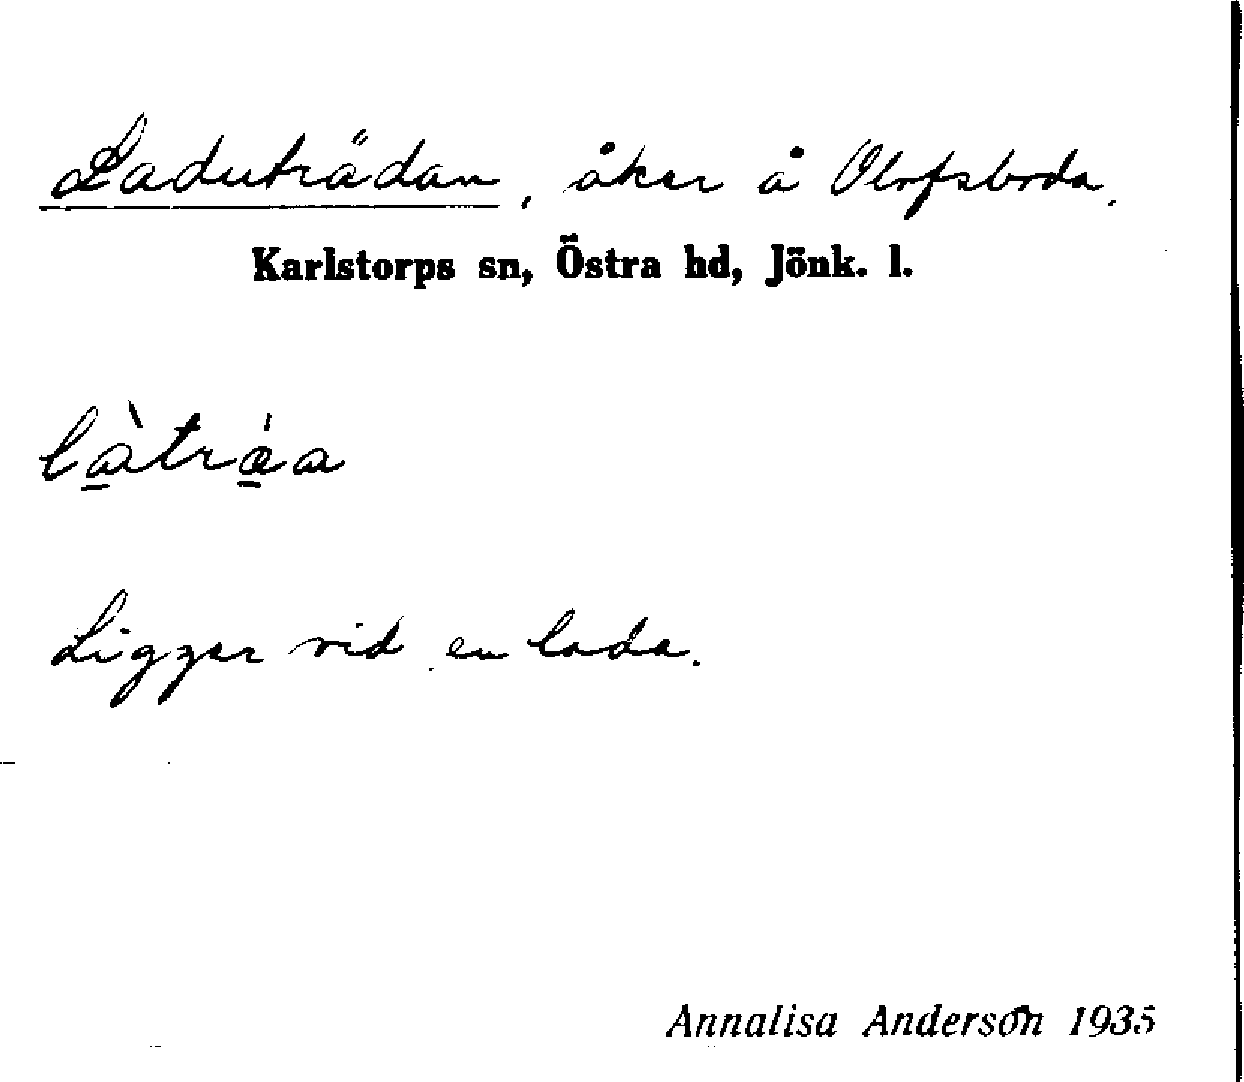 Laduträdan, åker å Olofsboda.
Karlstorps sn, Östra hd, Jönk. l.
là̱trǽ̱a
Ligger vid en lada.
Annalisa Anderson 1935